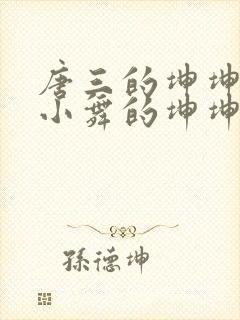 唐三的坤坤
小舞的坤坤
孫德坤